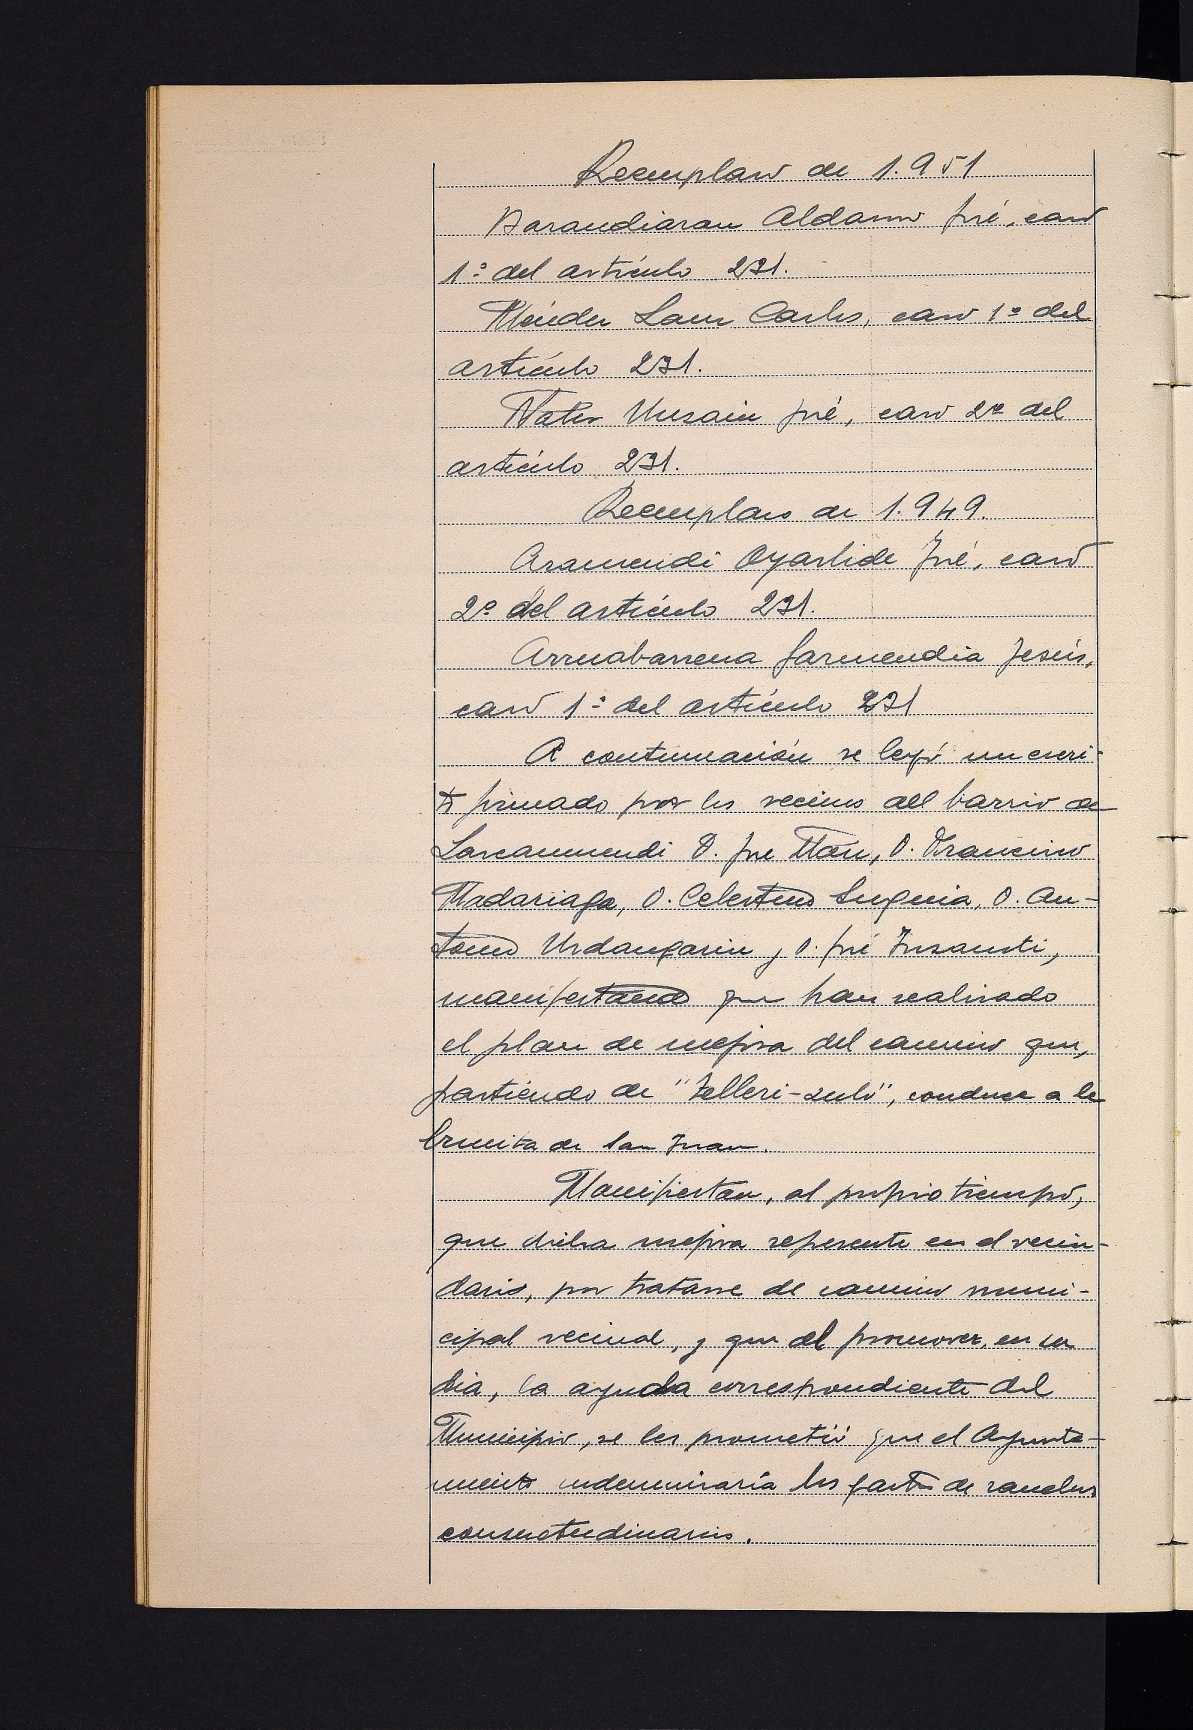 Reemplazo de 1.951
Barandiaran Aldazoro José, caso
1º del artículo 231.
Méndez Sanz Carlos, caso 1º del
artículo 231.
José, caso 2º del
artículo 231.
Reemplazo de 1.949.
Aramendi Oyarbide José, caso
2º del artículo 231.
Arruabarrena Garmendia Jesús,
caso 1º del artículo 231
A continuación se leyó un escri-
to firmado por los vecinos del barrio de
Lascanmendi D. José D. Francisco
Madariaga, D. Celestino Suquia, D. An-
tonio Urdangarin y D. José Insausti,
manifestando que han realizado
el plan de mejora del camino que,
partiendo de "Telleri-zulo", conduce a la
Ermita de San Juan.
Manifiestan, al propio tiempo,
que dicha mejora repercute en el vecin-
dario, por tratarse de camino muni-
cipal vecinal, y que al promover, en su
día, la ayuda correspondiente del
Municipio, se les prometió que el Ayunta-
miento indemnizaría los gastos de ranchos
consuetudinarios.